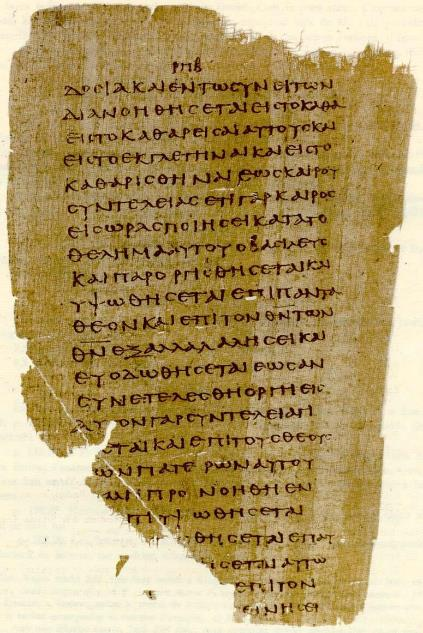 ρπβ
δοσιακαιεντωσυνειτων
διανοηθησεταιειστοκαθα
ειστοκαθαρεισαιαυτουσκαι
ειστοεκλεγηναικαιειστο
καθαρισθηναιεωσκαιρου
συντελειασετιγαρκαιροσ
εισωρασποιησεικατατο
θελημααυτουοβασιλευσ
καιπαροργισθησεταικαι
υψωθησεταιεπιπαντα
θεονκαιεπιτονθντων
θνεξαλλαλαλησεικαι
ευοδωθησεταιεωσαν
συνετελεσθηοργηεισ
αυτονγαρσυντελειαγι
εταικαιεπιτουσθεουσ
ωνπατερωναυτου
μηπρονοηθηεν
υψωθησεται
θησεταιεπαυ
ισεταιαυτω
επιτον
εινησει